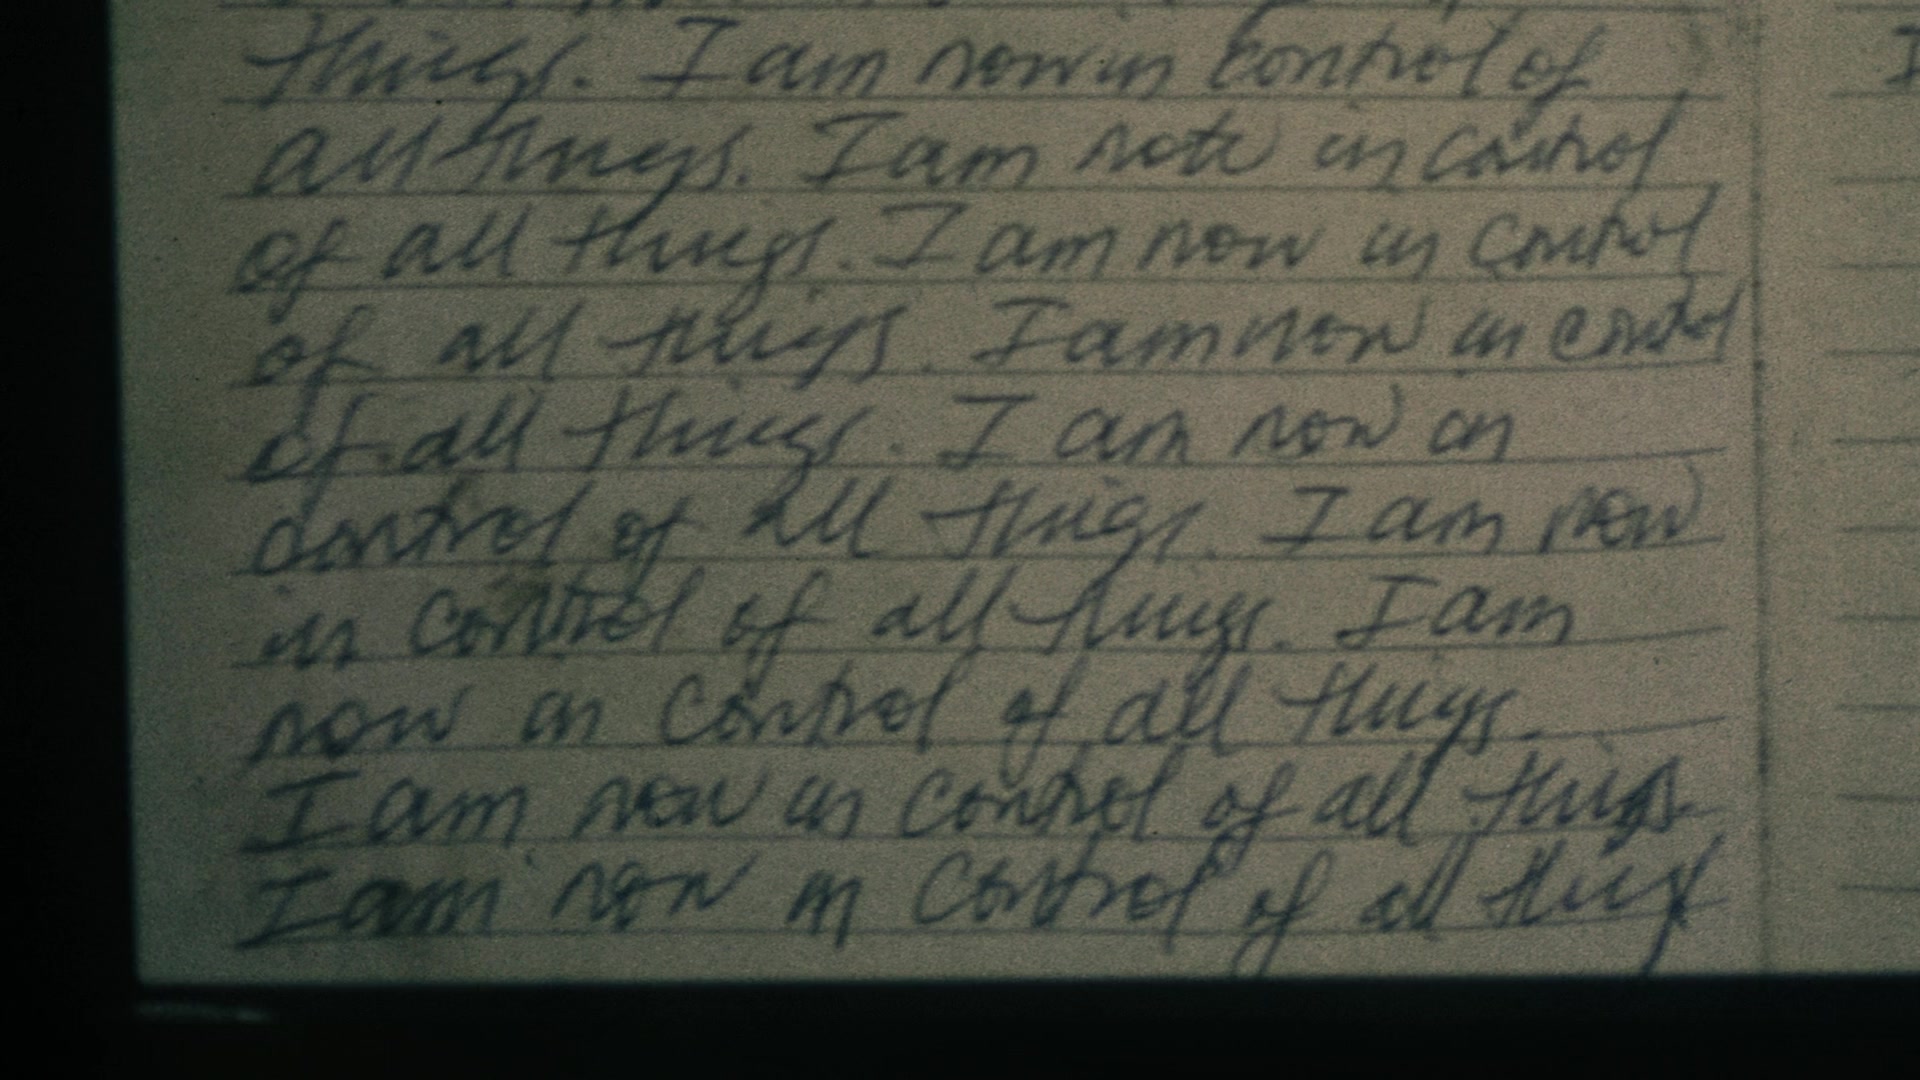 things. I am now in control of
all things. I am note in control
of all things. I am now in control
of all things. I am now in control
of all things. I am now in
control of all things. I am now
in control of all things. I am
now in control of all things.
I am now in control of all things
I am now in control of all things
I